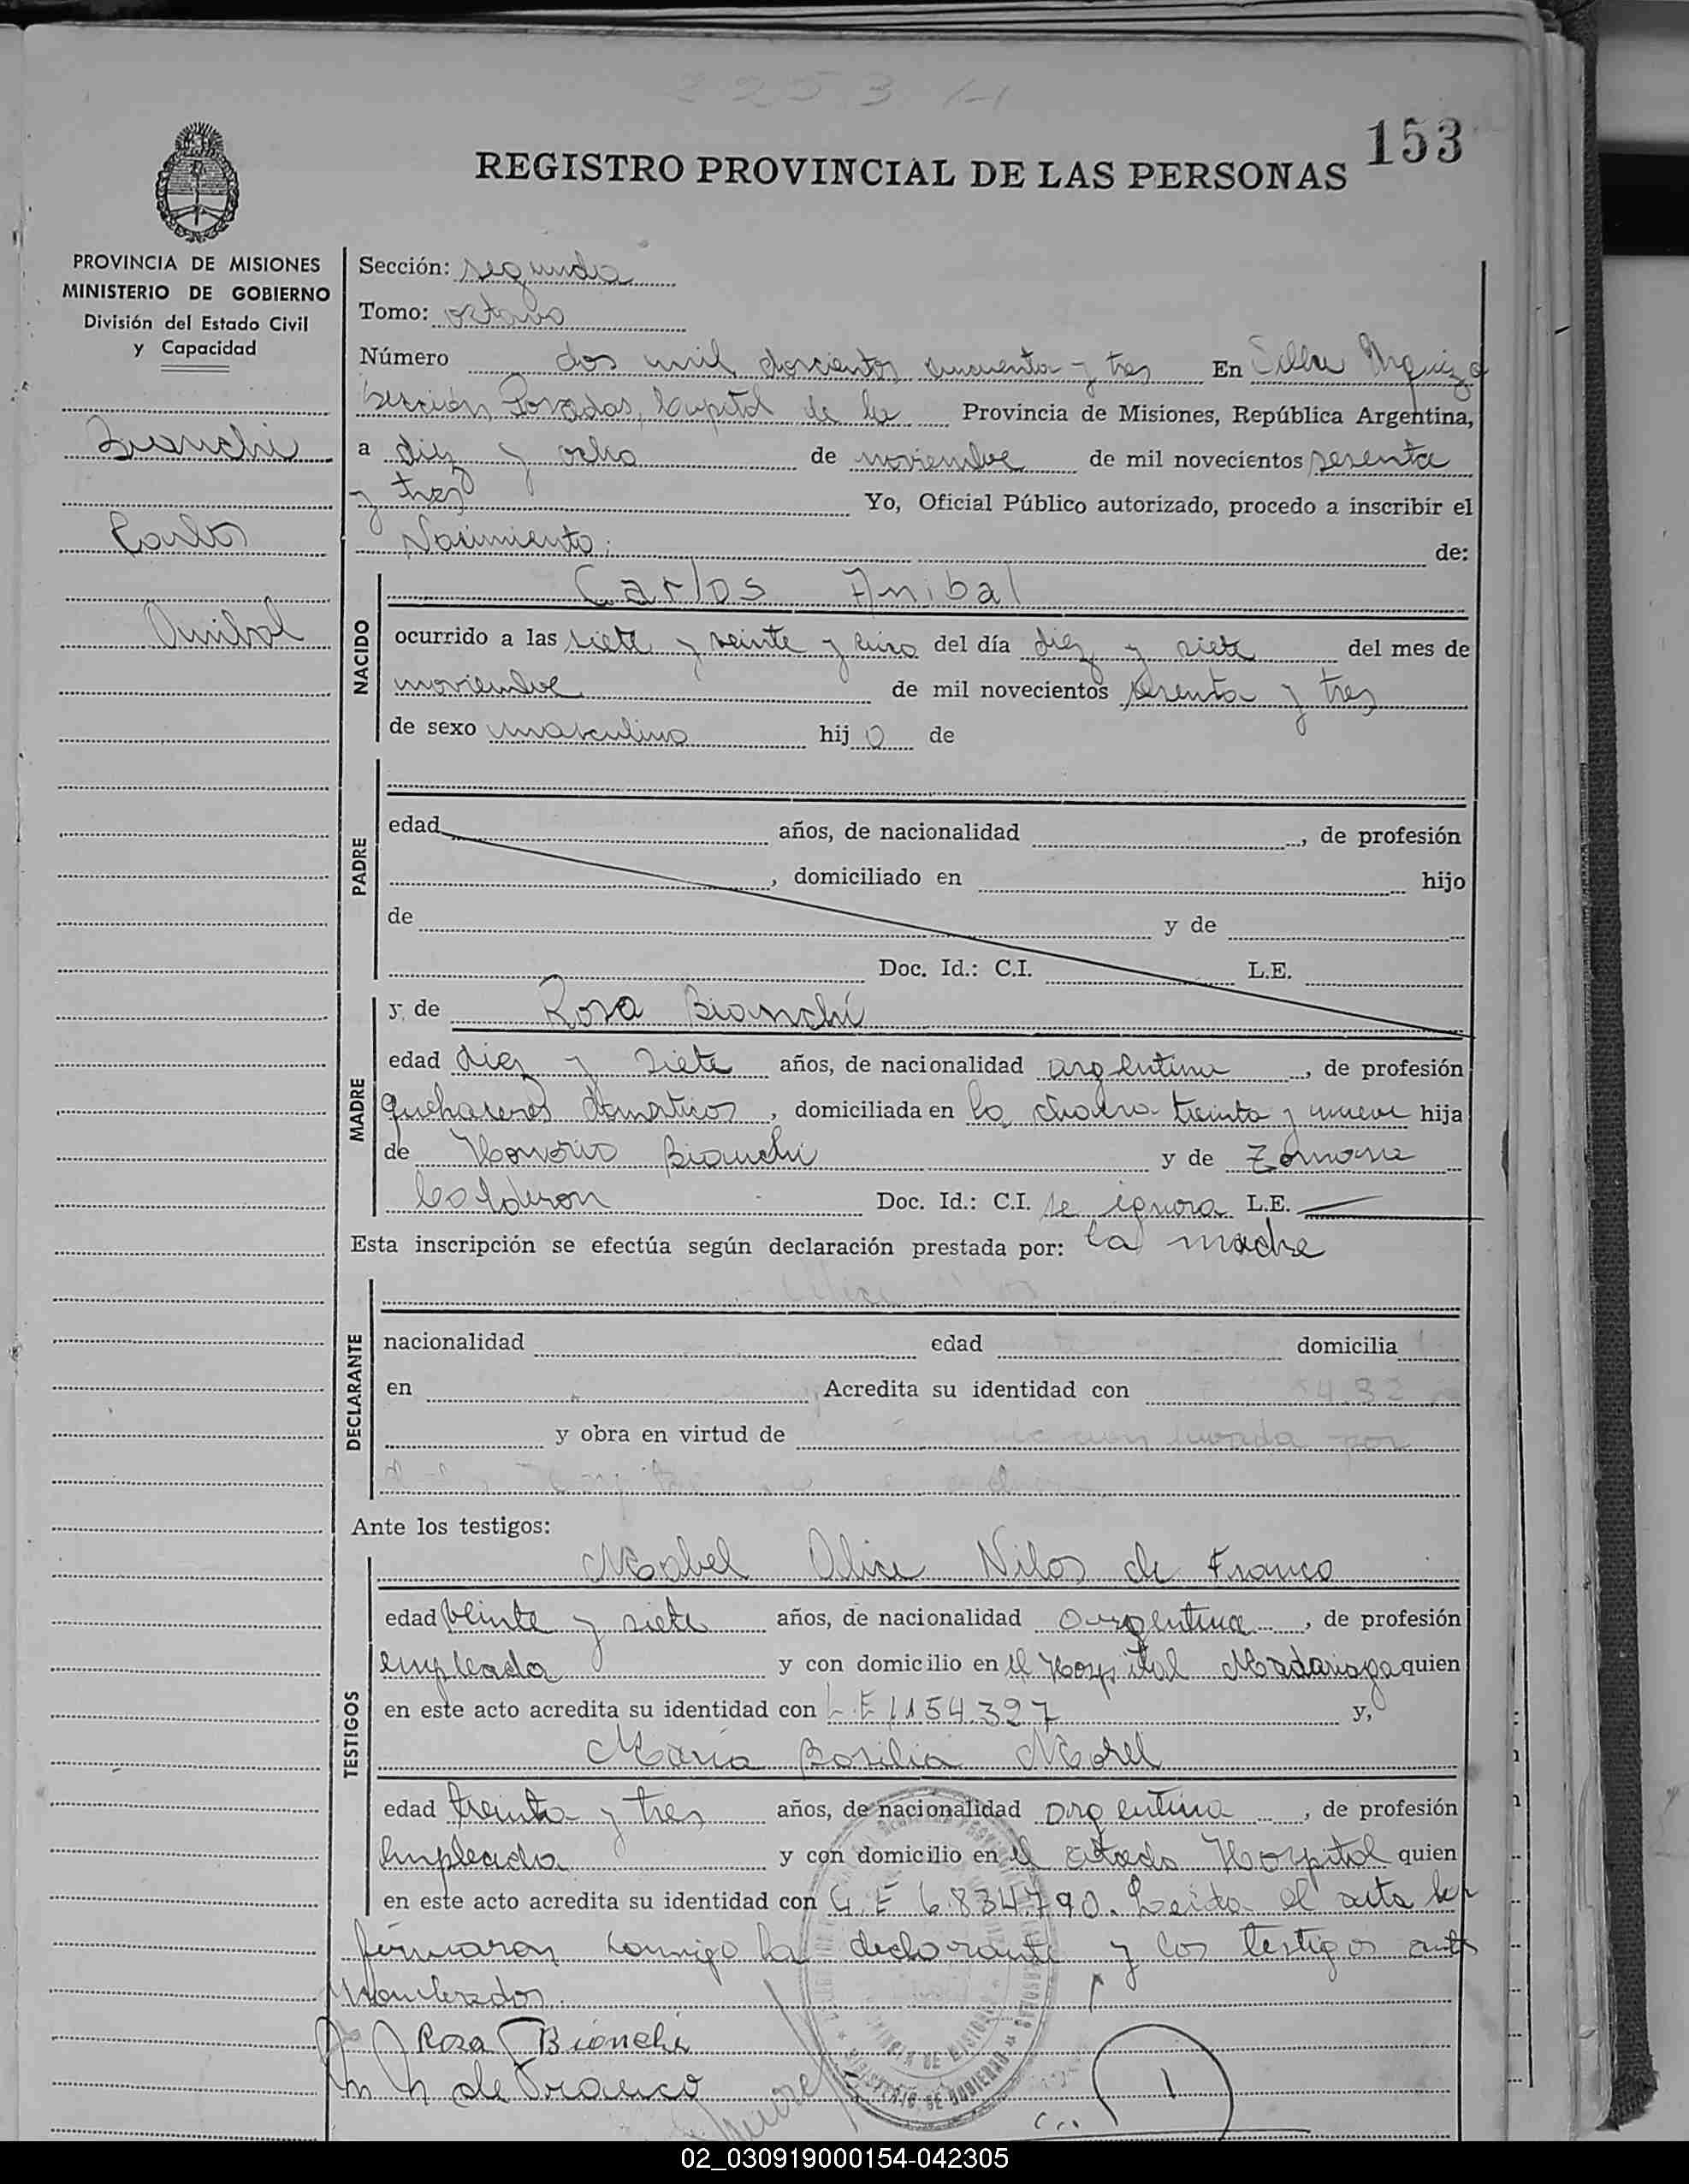 2253
153
REGISTRO PROVINCIAL DE LAS PERSONAS
PROVINCIA DE MISIONES
MINISTERIO DE GOBIERNO
División del Estado Civil
y Capacidad
Bianchi
Carlos
Anibal
Sección: segunda
Tomo: octavo
Número dos mil doscientos cincuenta y tres En Villa Urquiza
Sección, Posadas, Capital de la Provincia de Misiones, República Argentina,
a diez y ocho de noviembre de mil novecientos sesenta
y tres Yo, Oficial Público autorizado, procedo a inscribir el
Nacimiento. de:
NACIDO
Carlos Anibal
ocurrido a las siete y veinte y cinco del día diez y siete del mes de
noviembre de mil novecientos sesenta y tres
de sexo masculino hijo de
PADRE
edad años, de nacionalidad , de profesión
, domiciliado en hijo
de y de
Doc. Id.: C.I. L.E.
MADRE
y de Rosa Bianchi
edad diez y siete años, de nacionalidad argentina , de profesión
quehaceres domesticos , domiciliada en la chacra treinta y nueve hija
de Honorio Bianchi y de Zomona
Calderon Doc. Id.: C.I. se ignora L.E.
Esta inscripción se efectúa según declaración prestada por: la madre
DECLARANTE
nacionalidad edad domicilia
en Acredita su identidad con
y obra en virtud de
Ante los testigos:
TESTIGOS
Mabel Alice Nilos de Franco
edad veinte y siete años, de nacionalidad argentina , de profesión
empleada y con domicilio en el Hospital Madariaga quien
en este acto acredita su identidad con L E 1154.327 y,
María Basilia Morel
edad treinta y tres años, de nacionalidad argentina , de profesión
empleada y con domicilio en el citado Hospital quien
en este acto acredita su identidad con L. E 6.834.790. Leida el acta la
firmaron conmigo la declarante y los testigos antes
nombrados.
Rosa Bianchi
de Franco
02_030919000154-042305